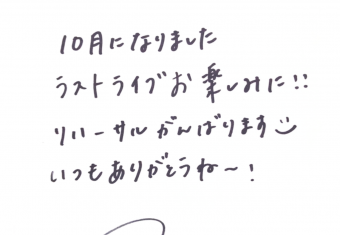 10月になりました
ラストライブお楽しみに!!
リハーサルがんばります
いつもありがとうね〜!